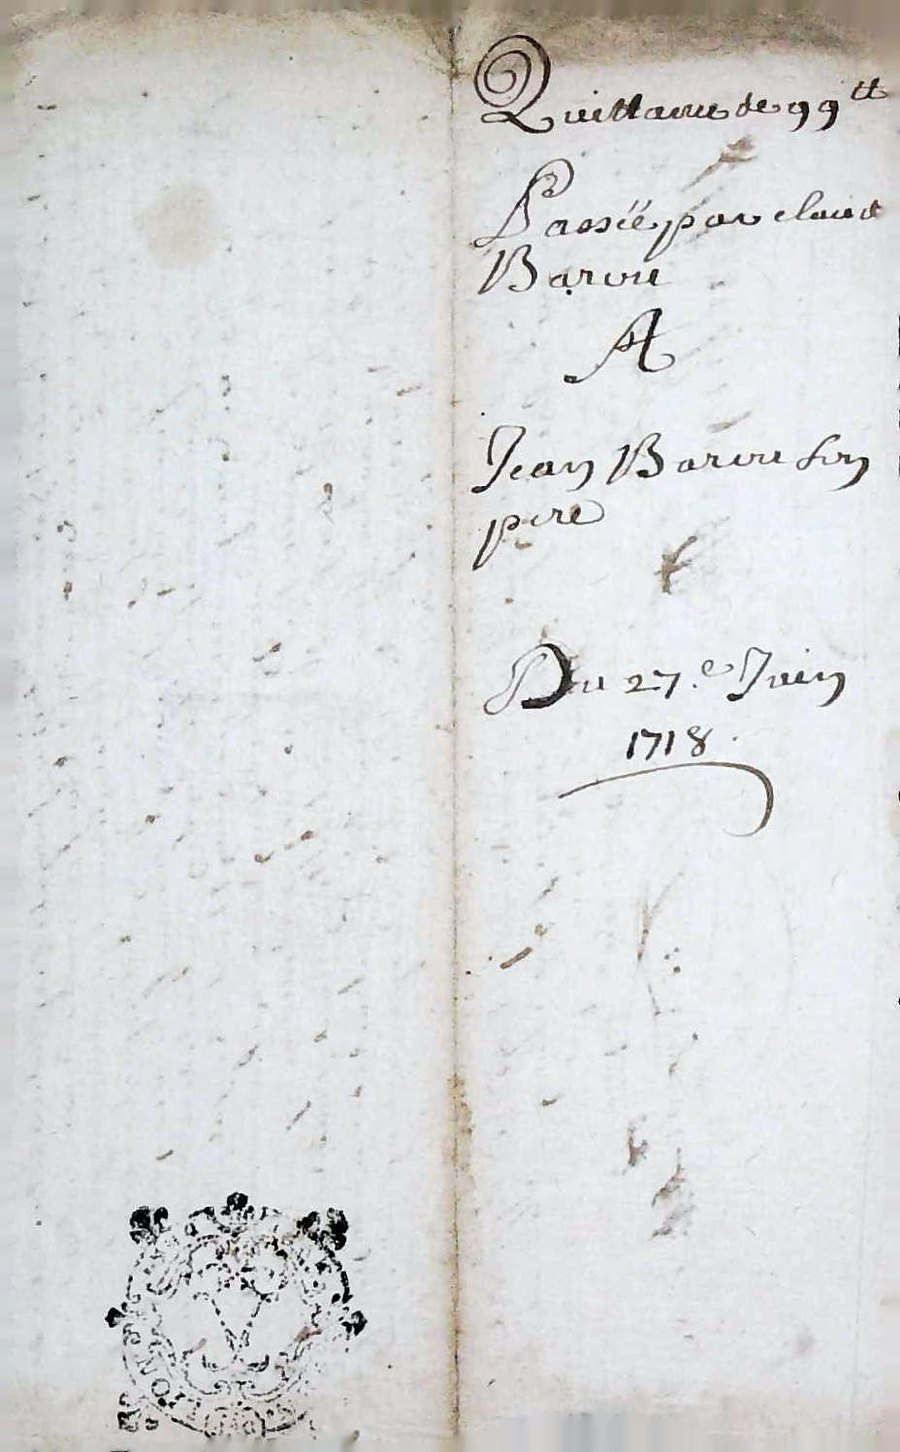 Quittance de 99 tt
Passée par claude
Barou
A
Jean Barou son
pere
Du 27.e Juin
1718.